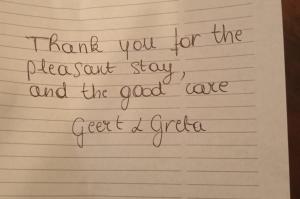 Thank you for the
pleasant stay,
and the good care
Geert & Greta